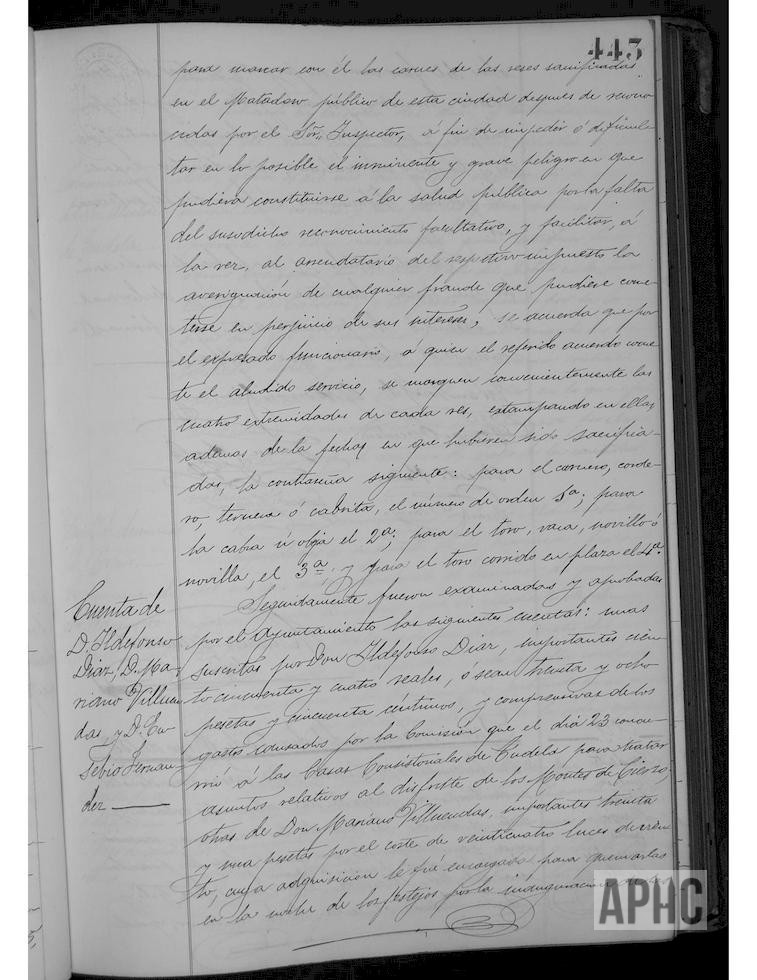 443
para marcar con él las carnes de las reses sacrificadas
en el Matadero público de esta ciudad despues de recono-
cidas por el Sor. Inspector, á fin de impedir ó dificul-
tar en lo posible el inminente y grave peligro en que
pudiera constituirse á la salud pública por la falta
del susodicho reconocimiento facultativo, y facilitar, á
la vez, al arrendatario del respectivo impuesto la
averiguación de cualquier fraude que pudiere come-
terse en perjuicio de sus intereses, se acuerda que por
el expresado funcionario, á quien el referido acuerdo come-
te el aludido servicio, se marquen convenientemente las
cuatro extremidades de cada res, estampando en ellas
ademas de la fecha en que hubieren sido sacrifica-
das, la contraseña siguiente: para el carnero, corde-
ro, ternera ó cabrito, el número de orden 1ª; para
la cabra ú oveja el 2ª; para el toro, vaca, novillo ó
novilla, el 3ª y para el toro corrido en plaza el 4ª.
Cuenta de
D. Ildefonso
Diaz, D. Ma-
riano Villuen-
das, y D. Eu-
sebio Fernan-
dez
Seguidamente fueron examinadas y aprobadas
por el Ayuntamiento las siguientes cuentas: unas
suscritas por Don Ildefonso Diaz, importantes cien-
to cincuenta y cuatro reales, ó sean treinta y ocho
pesetas y cincuenta céntimos, y comprensivas de los
gastos causados por la Comisión que el dia 23 concu-
rrió á las Casas Consistoriales de Tudela para tratar
asuntos relativos al disfrute de los Montes de Cierzo;
otras de Don Mariano Villuendas, importantes treinta
y una pesetas por el coste de veinticuatro luces de
cuya adquisición le fué encargada para quemarlas
en la noche de los festejos por la inauguración
APHC